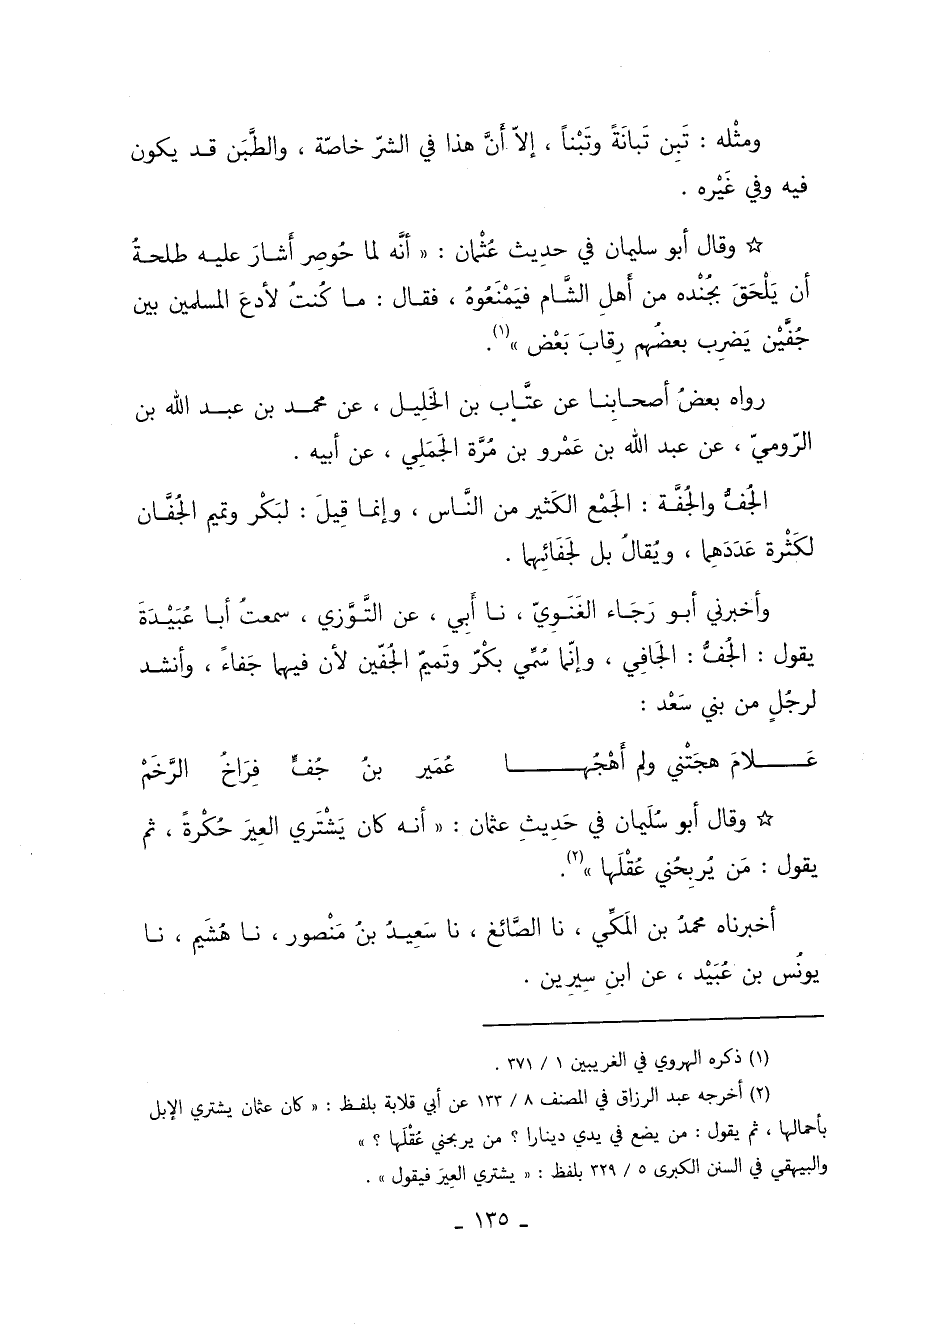 ومثْله : تَبِن تَبانَةً وتَبْناً ، إلاّ أَنَّ هذا في الشرّ خاصّة ، والطَّبَن قـد يكون
فيه وفي غَيْره .
☆ وقال أبو سليمان في حديث عُثْمان : « أنَّه لما حُوصِر أَشارَ عليـه طلحـةُ
أن يَلْحَقَ بجُنْده من أَهلِ الشَّام فيَمْنَعُوهُ ، فقـال : مـا كُنتُ لأدعَ المسلمين بين
جُفَّيْن يَضرِب بعضُهم رِقابَ بَعْض »(١).
رواه بعضُ أصحـابنـا عن عتَّـاب بن الخَليـل ، عن محمـد بن عبـد الله بن
الرّوميّ ، عن عبد الله بن عَمْرو بن مُرَّة الجَمَلي ، عن أبيه .
الجُفُّ والجُفَّـة : الجَمْع الكَثير من النَّـاس ، وإنمـا قِيلَ : لبَكْر وتميم الجُفَّـان
لكَثْرة عَدَدَهما ، ويُقالُ بل لجَفَائِهما .
وأخبرني أبـو رَجَـاء الغَنَـويّ ، نـا أَبي ، عن التَّـوَّزي ، سمعتُ أبـا عُبَيْـدَةَ
يقول : الجُفُّ : الجَافِي ، وإنَّما سُمِّي بكْرٌ وتَميمٌ الجُفّين لأن فيهما جَفاءً ، وأنشـد
لرجُلٍ من بني سَعْد :
عَــــلامَ هجَتْني ولم أَهْجُهــــا عُمَير بنُ جُفٍّ فِرَاخُ الرَّخَمْ
☆ وقال أبو سُلَيمان في حَديثِ عثمان : « أنـه كان يَشْتَري العِيرَ حُكْرةً ، ثم
يقول : مَن يُربِحُني عُقْلَها »(٢).
أخبرناه محمدُ بن المَكّي ، نا الصَّائغ ، نا سَعِيـدُ بنُ مَنْصور ، نـا هُشَيم ، نـا
يونُس بن عُبَيْد ، عن ابنِ سِيرِين .
(١) ذكره الهروي في الغريبين ١ / ٣٧١ .
(٢) أخرجه عبد الرزاق في المصنف ٨ / ١٣٣ عن أبي قلابة بلفـظ : « كان عثمان يشتري الإبل
بأحمالها ، ثم يقول : من يضع في يدي دينارا ؟ من يربحني عُقْلَها ؟ »
والبيهقي في السنن الكبرى ٥ / ٣٢٩ بلفظ : « يشتري العِيرَ فيقول » .
ـ ١٣٥ ـ